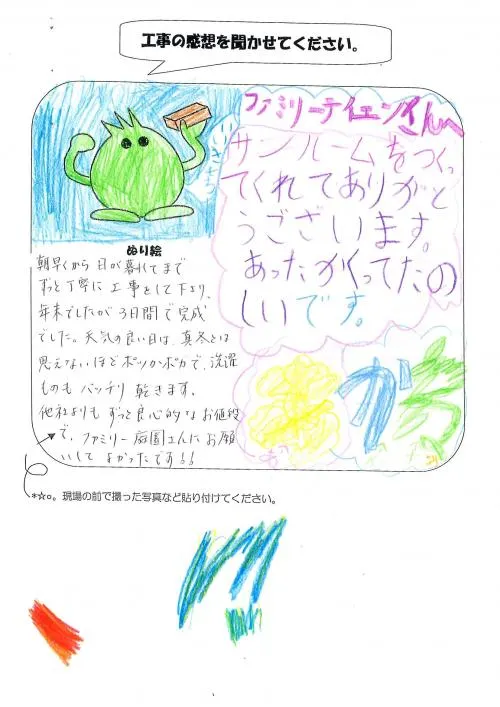 工事の感想を聞かせてください。
ファミリーテイエンさんへ
サンルームをつくっ
てくれてありがと
うございます。
あったかくってたの
しいです。
ぬり絵
朝早くから日が暮れてまで
ずっと丁寧に工事をして下より、
年末でしたが3日間で完成
でした。天気の良い日は、真冬とは
思えないほどポッカポカで、洗濯
ものもバッチリ乾きます。
他社よりもずっと良心的なお値段
で、ファミリー庭園さんにお願
いしてよかったです!!
*☆o。現場の前で撮った写真など貼り付けてください。